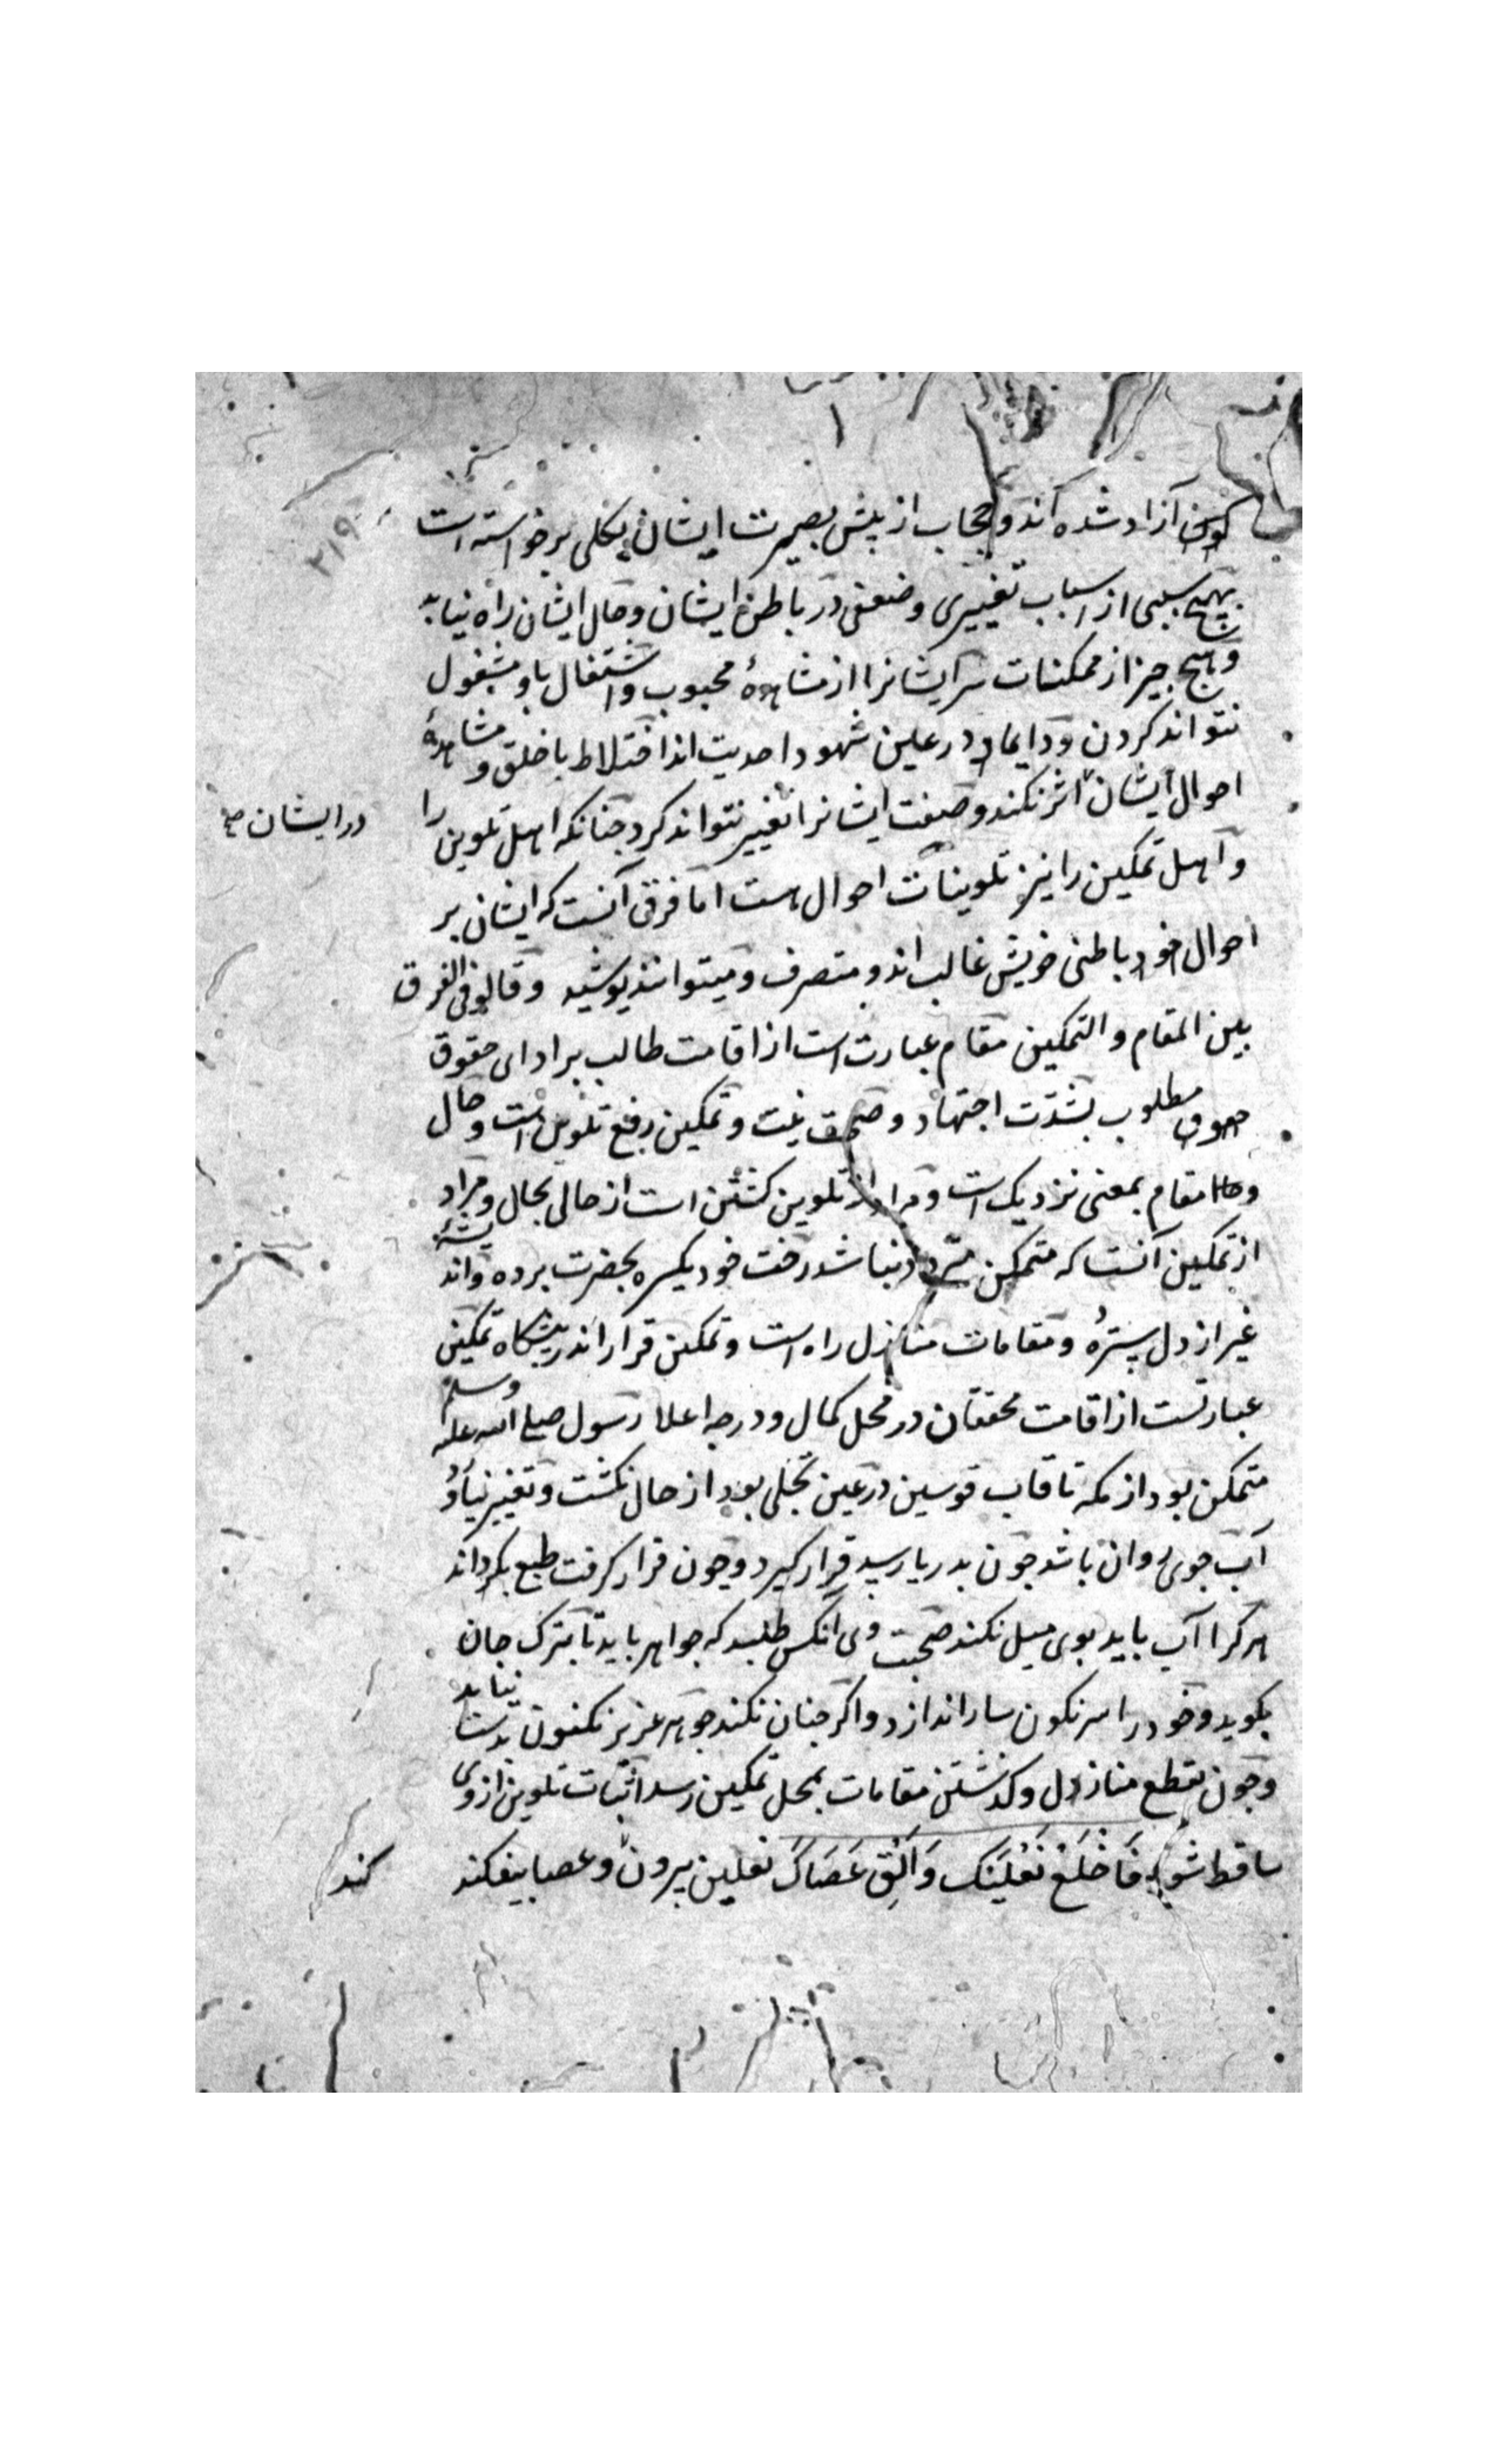 ۲۱۹
کونین آزاد شده اند و حجاب از پیش بصیرت ایشان بکلی برخواسته است
بهیچ سببی از اسباب تغییری و ضعفی در باطن ایشان و حال ایشان راه نیابد
و هیچ چیز از ممکنات سر ایشانرا از مشاهدهٔ محبوب و اشتغال باو مشغول
نتواند کردن و دایما در عین شهود احدیت اند اختلاط با خلق و مشاهدهٔ
احوال ایشان اثر نکند و صفت ایشانرا تغییر نتواند کرد چنانکه اهل تلوین را
در ایشان صح
و اهل تمکین را نیز تلوینات احوال هست اما فرق آنست که ایشان بر
احوال خود باطنی خویش غالب اند و متصرف و میتوانند پوشید و قالو فی الفرق
بین المقام و التمکین مقام عبارت است از اقامت طالب بر ادای حقوق
مطلوب بشدّت اجتهاد و صحت نیت و تمکین رفع تلوین است و حال
و مقام بمعنی نزدیک است و مراد از تلوین کشتن است از حالی بحال و مراد
از تمکین آنست که متمکن متردد نباشد رخت خود یکسره بحضرت برده و اندیشهٔ
غیر از دل سترده و مقامات منازل راه است و تمکین قرار اندر پیشکاه تمکین
عبارتست از اقامت محققان در محل کمال و درجه اعلا رسول صلی الله علیه وسلم
متمکن بود از مکه تا قاب قوسین در عین تجلی بود از حال نکشت و تغییر نیاورد
آب جوی روان باشد چون بدریا رسید قرار کیرد و چون قرار کرفت طبع بکرداند
هر کرا آب باید بوی میل نکند صحبت وی انکس طلبد که جواهر باید تا بترک جان
بکوید و خود را سرنکون سار اندازد و اکر چنان نکند جوهر عزیز مکنون بدست نیاید
و چون بقطع منازل و کذشتن مقامات بمحل تمکین رسد اثبات تلوین از وی
ساقط شود فَاخْلَعْ نَعْلَیْکَ وَاَلْقِ عَصَاکَ نعلین بیرون و عصا بیفکند کند